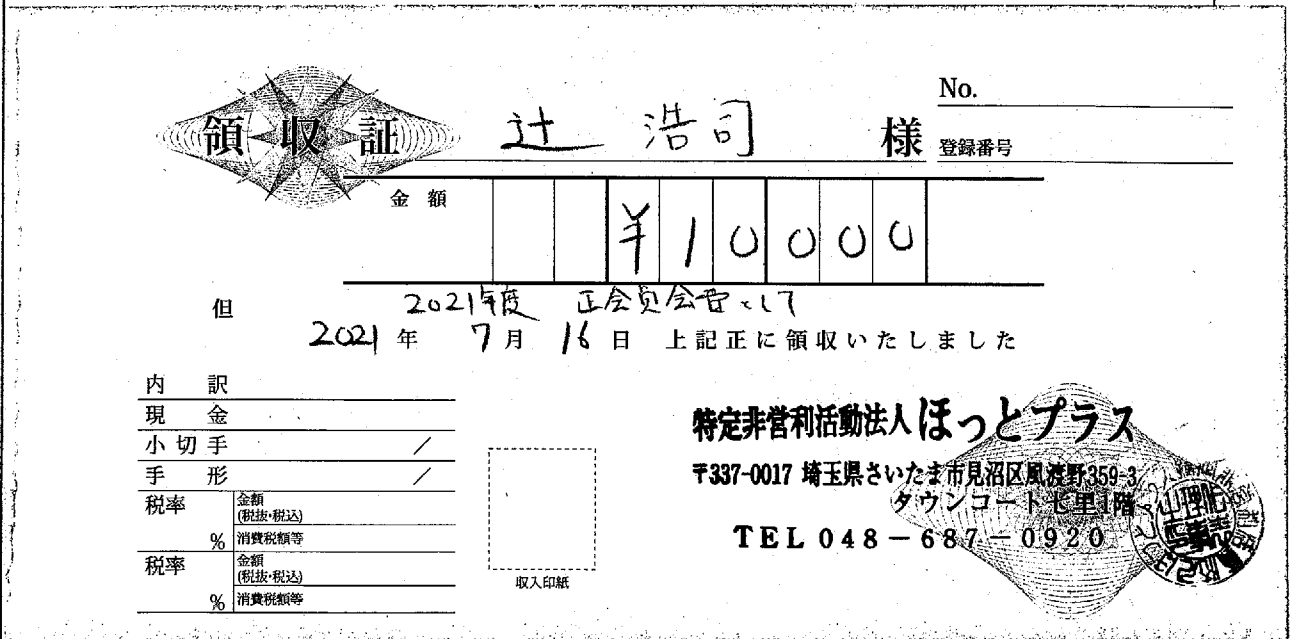 No.
領収証 辻 浩司 様
登録番号
金額
¥10000
但 2021年度 正会員会費として
2021年 7月 16日 上記正に領収いたしました
内訳
現金
小切手 /
手形 /
税率 % 金額(税抜・税込)
消費税額等
税率 % 金額(税抜・税込)
消費税額等
収入印紙
特定非営利活動法人ほっとプラス
〒337-0017 埼玉県さいたま市見沼区風渡野359-3
タウンコート七里1階
TEL 048-687-0920